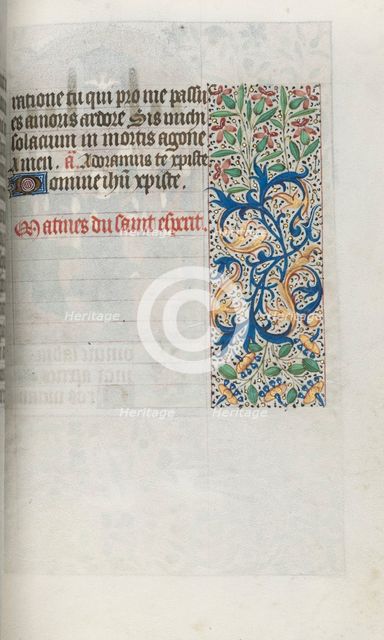 ratione tu qui pro me passus
es amoris ardore Sis michi
solacium in mortis agone
Amen. a. Adoramus te xpiste
Domine ihu xpiste.
Matines du saint esperit.
Heritage Heritage
Heritage Heritage